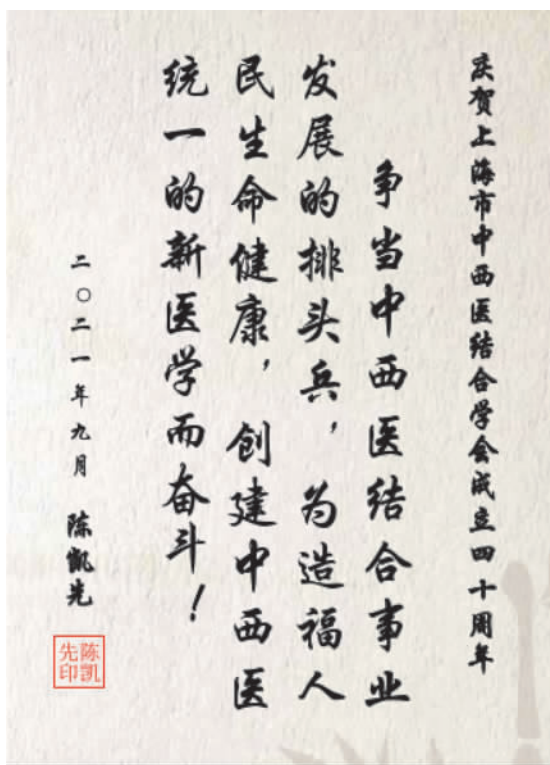 庆贺上海市中西医结合学会成立四十周年
争当中西医结合事业
发展的排头兵，为造福人
民生命健康，创建中西医
统一的新医学而奋斗！
二〇二一年九月 陈凯先
陈凯
先印